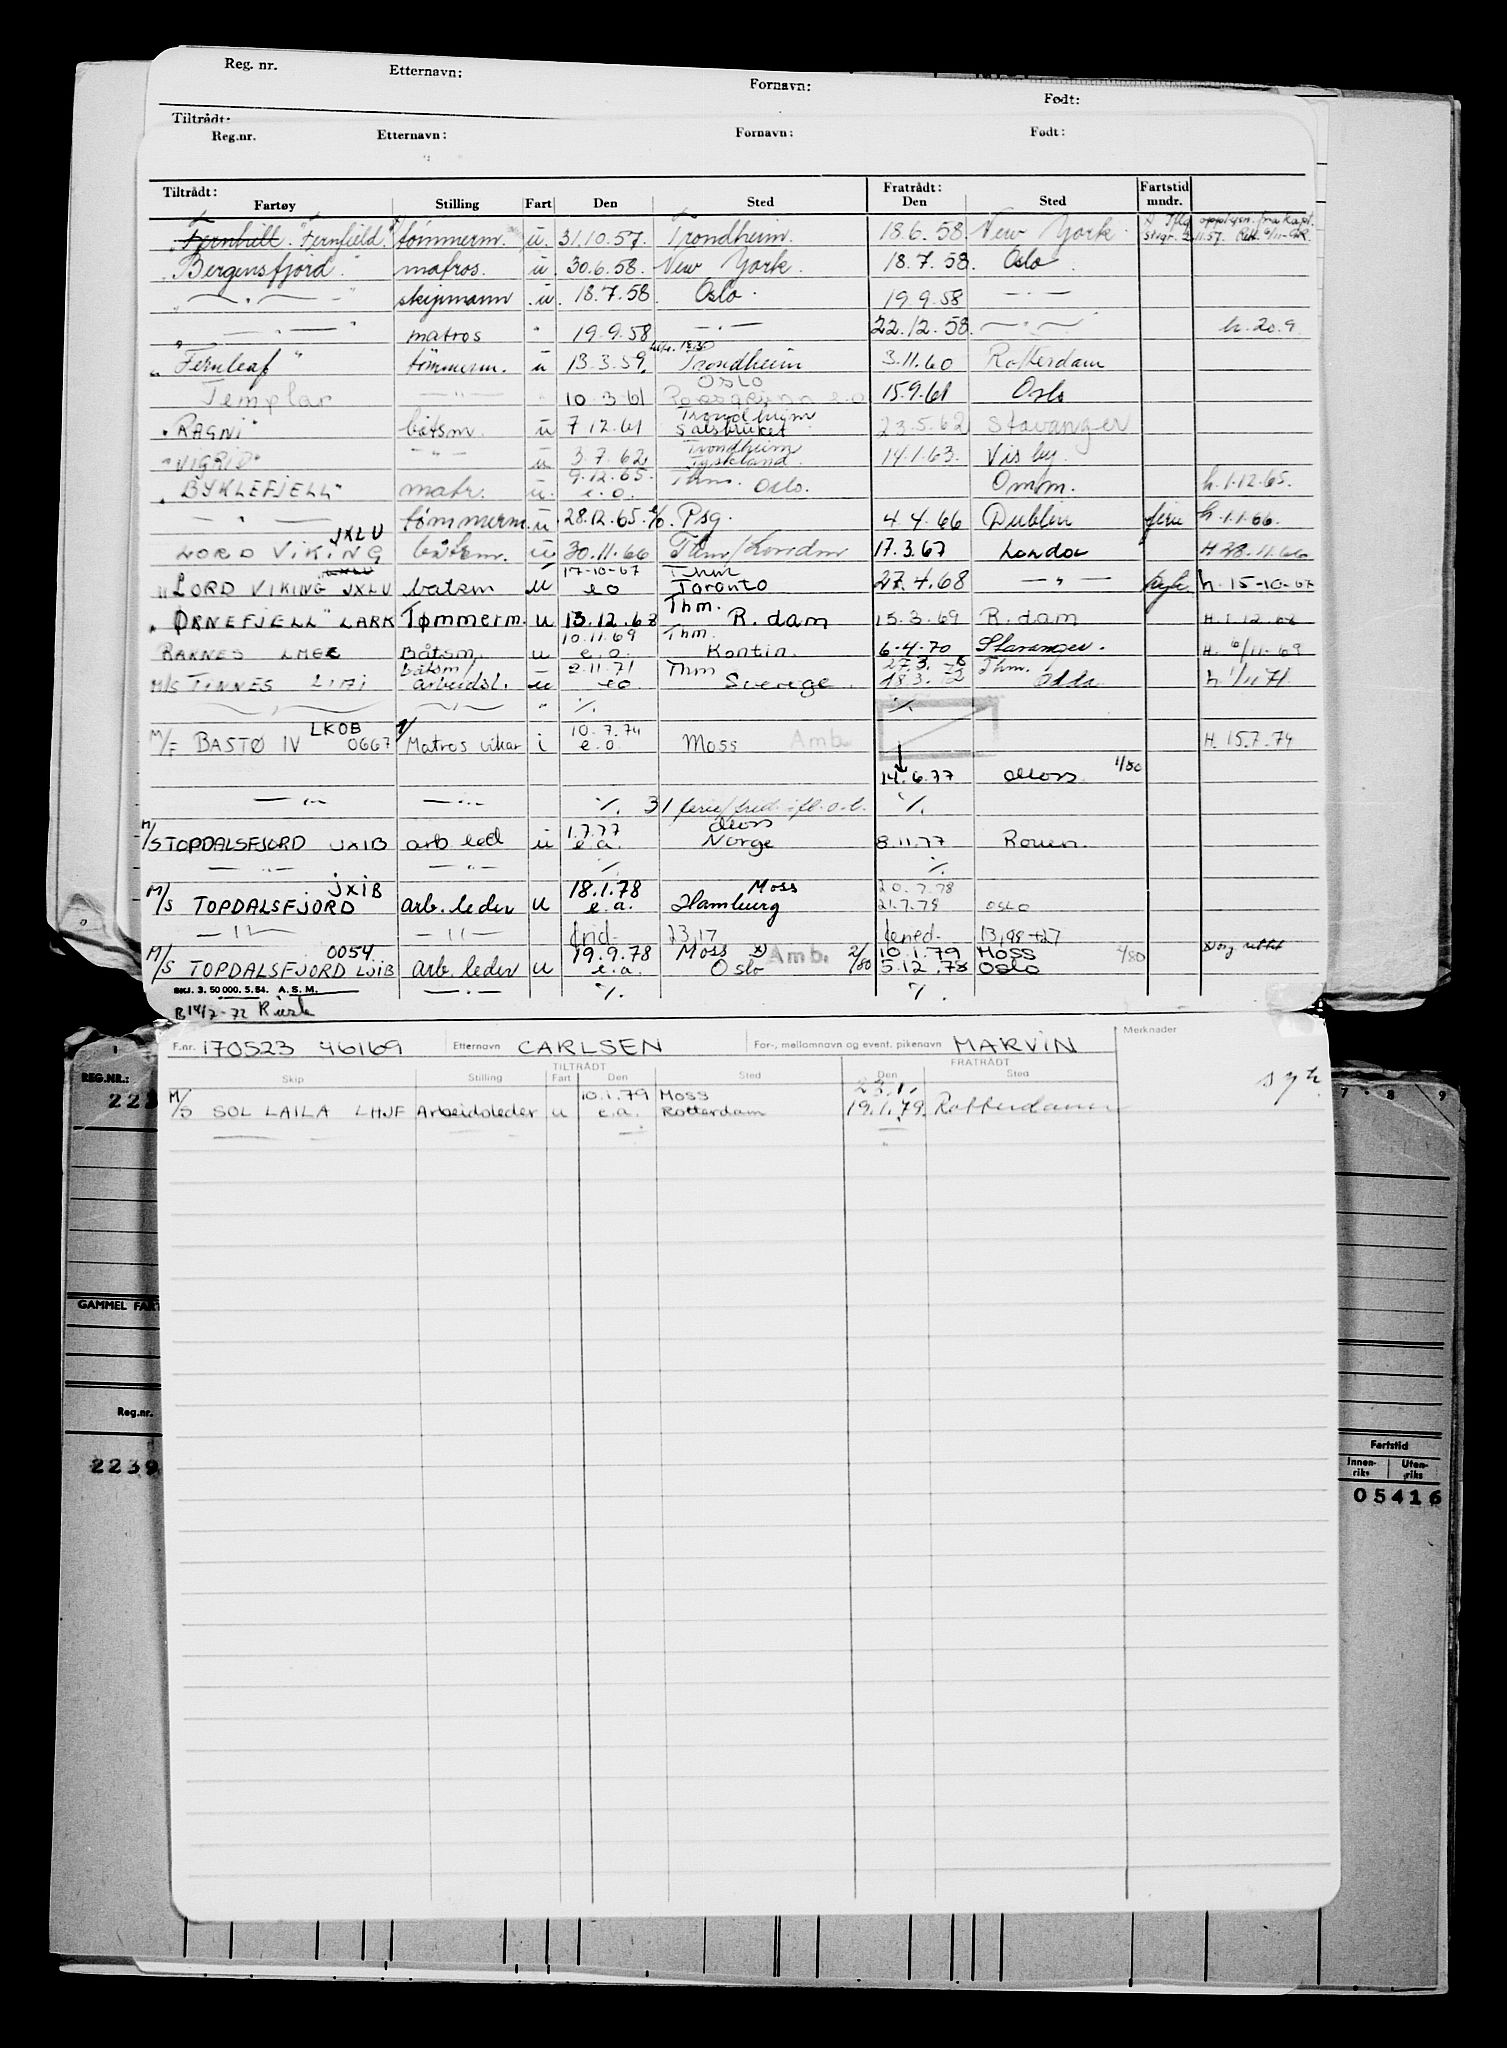 Reg. nr. Etternavn: Fornavn: Født:
Tiltrådt:
Reg.nr. Etternavn: Fornavn: Født:
Tiltrådt: Fratrådt: Fartstid
Fartøy Stilling Fart Den Sted Den Sted mndr.
"Fernhill" "Fernfield" tømmerm. u. 31.10.57. Trondheim. 18.6.58. New York.
"Bergensfjord" matros. u. 30.6.58. New York. 18.7.58. Oslo
— " — skipmann u. 18.7.58. Oslo. 19.9.58 — " —
— " — matros " 19.9.58 — " — 22.12.58. — " — h. 20.9
"Fernleaf" tømmerm. u 13.3.59. Trondheim 3.11.60 Rotterdam
Oslo
Templar — " — 10.3.61 15.9.61 Oslo
Trondheim
"RAGNI" båtsm. u 7.12.61 Salsbruket 23.5.62 Stavanger
Trondheim
"VIGRID" — " — u 3.7.62 Tyskland. 14.1.63. Visby.
9.12.65. Thm.
"BYKLEFJELL" matr. u. e.o. Oslo. Omm. h. 1.12.65.
— " — tømmerm. u 28.12.65. e/o. Psg. 4.4.66 Dublin ferie h. 1.1.66.
JXLU
LORD VIKING båtsm. u 30.11.66 Thm/London 17.3.67 London H 28.11.66
17-10-67 Thm
"LORD VIKING JXLU båtsm u eo Toronto 27.4.68 — " — h. 15-10-67
Thm.
"ØRNEFJELL" LARK Tømmerm. u 13.12.68 R.dam 15.3.69 R.dam H. 1.12.68
10.11.69 Thm.
RAKNES LMEE Båtsm. u e.o. Kontin. 6-4-70 Stavanger. H. 6/11-69
båtsm/ 2.11.71 Thm 27.3. Thm.
M/S TINNES arbeidsl. u eo Sverige 18.3.72 Odda h 1/11 71
— " — — " — " %. %
LKOB 10.7.74
M/F BASTØ IV 0667 Matros vikar i e.o. Moss Amb. H. 15.7.74
14.6.77 Moss 1/80
— " — — " — %. 31 %.
M/S TOPDALSFJORD JXIB arb led u 1.7.77 e.a. Moss Norge 8.11.77 Rouen.
— " — — " — %. %.
JXIB 18.1.78 Moss 20.7.78
M/S TOPDALSFJORD arb. leder u e.a. Hamburg 21.7.78 OSLO
— " — — " — 23,17 13,98+27
0054 19.9.78 Moss x) 2/80 10.1.79 MOSS 4/80
M/S TOPDALSFJORD LJIB arb. leder u e.a. Oslo Amb. 5.12.78 OSLO
BKJ. 3. 50 000. 5. 54. A.S.M. — " — %. %.
B 14/7-72
F.nr. 170523 46169 Etternavn CARLSEN For-, mellomnavn og event. pikenavn MARVIN Merknader
TILTRÅDT FRATRÅDT
Skip Stilling Fart Den Sted Den Sted
10.1.79 Moss 23.1. syk
M/S SOL LAILA LHJF Arbeidsleder u e.a. Rotterdam 19.1.79. Rotterdam
REG.NR.: 1 7 8 9
223
GAMMEL FART
Reg.nr.
2239
Fartstid
Innenriks Utenriks
05416